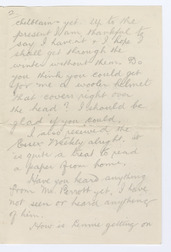 chilblains yet. Up to the
present I am thankful to
say I havent & I hope
shall get through the
winter without them. Do
you think you could get
for me a woolen helmet
that covers right over
the head? I should be
glad if you could.
I also received the
Essex Weekly alright. it
is quite a treat to read
a paper from home.
Have you heard anything
from Mr Perrott yet, I have
not seen or heard anything
of him.
How is Lennie getting on